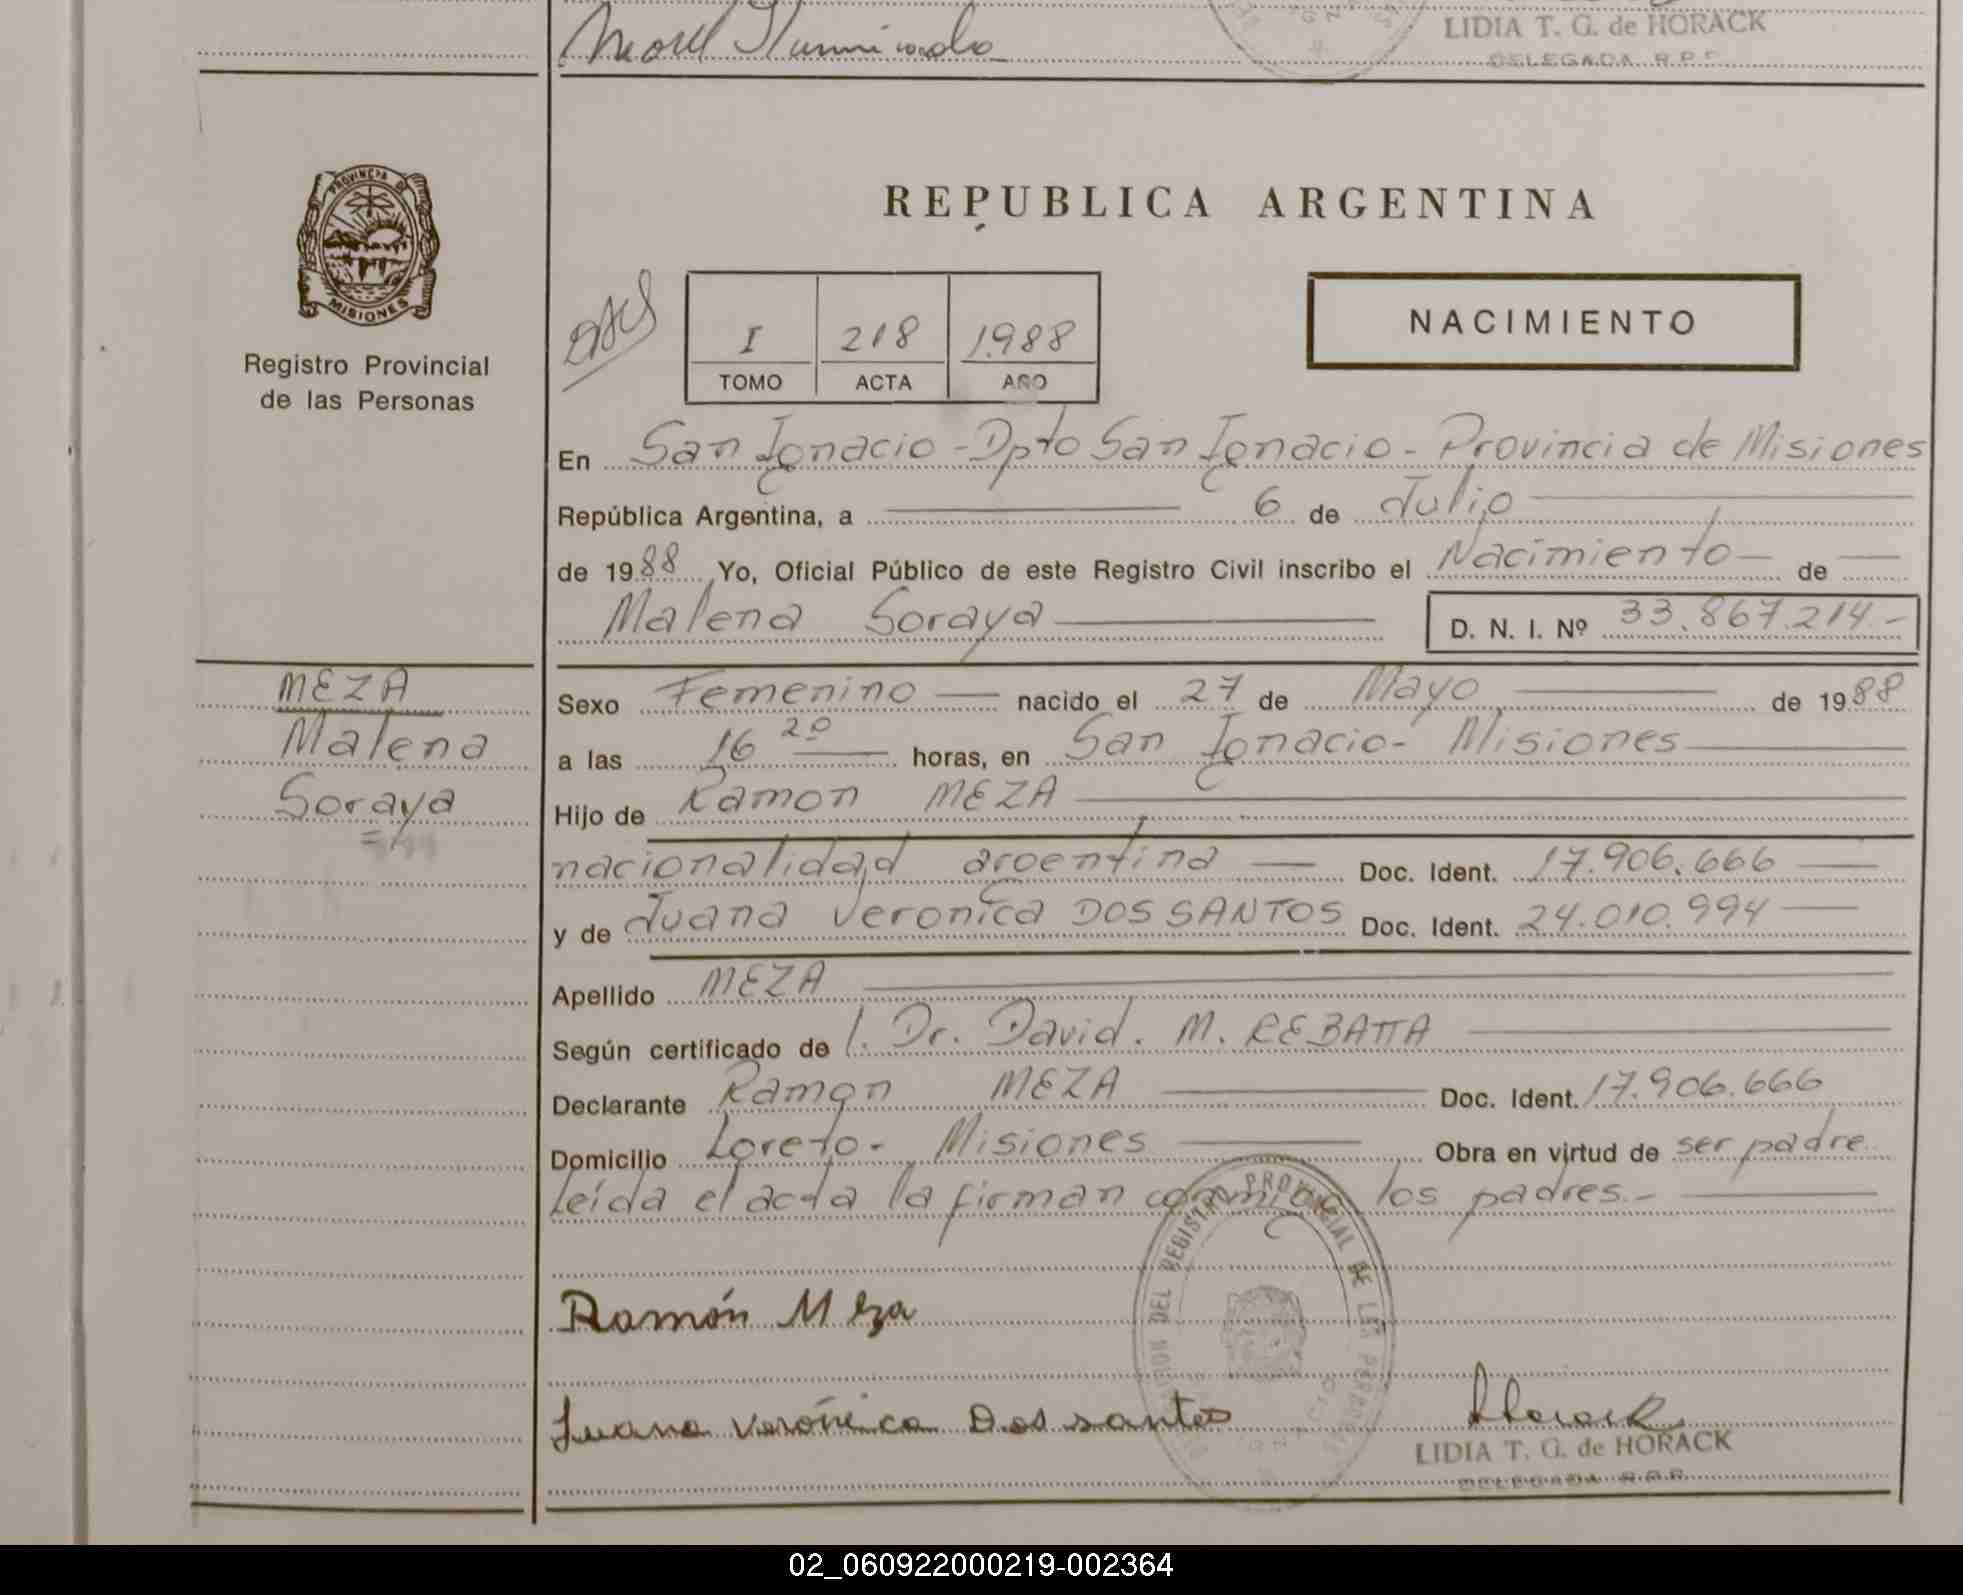 LIDIA T. G. de HORACK
DELEGADA R.P.P.
PROVINCIA DE
MISIONES
Registro Provincial
de las Personas
REPUBLICA ARGENTINA
I 218 1988
TOMO ACTA AÑO
NACIMIENTO
En San Ignacio - Dpto San Ignacio - Provincia de Misiones
República Argentina, a 6 de Julio
de 1988 Yo, Oficial Público de este Registro Civil inscribo el Nacimiento de
Malena Soraya D. N. I. Nº 33.867.214.-
MEZA
Malena
Soraya
Sexo Femenino nacido el 27 de Mayo de 1988
a las 16 20 horas, en San Ignacio - Misiones
Hijo de Ramon MEZA
nacionalidad argentina Doc. Ident. 17.906.666
y de Juana Veronica DOS SANTOS Doc. Ident. 24.010.994
Apellido MEZA
Según certificado de l. Dr. David. M. REBATTA
Declarante Ramon MEZA Doc. Ident. 17.906.666
Domicilio Loreto - Misiones Obra en virtud de ser padre
leída el acta la firman conmigo los padres.-
Ramón Meza
Juana Verónica Dos santos
Horack
LIDIA T. G. de HORACK
DELEGADA R.P.P.
DEL REGISTRO PROVINCIAL DE LAS PERSONAS
02_060922000219-002364